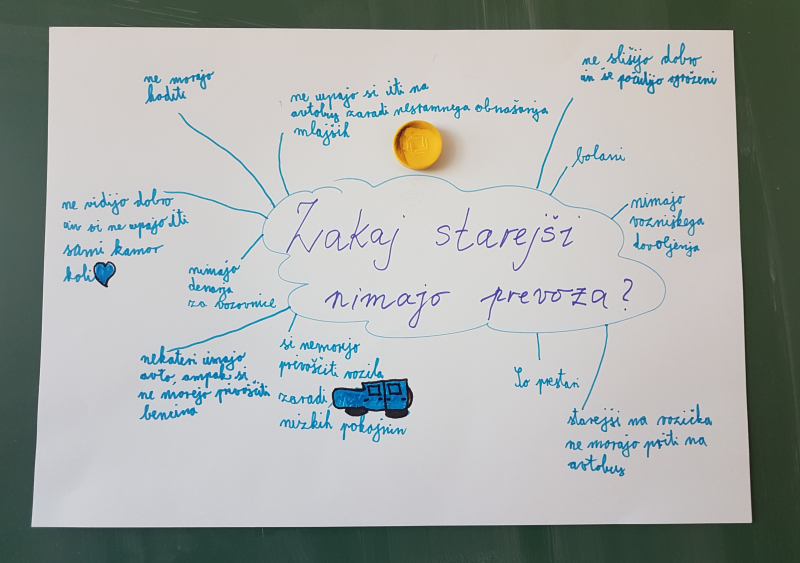 Zakaj starejši
nimajo prevoza?
ne morajo
hoditi
ne upajo si iti na
avtobus zaradi nesramnega obnašanja
mlajših
ne slišijo dobro
in se počutijo ogroženi
bolani
nimajo
vozniškega
dovoljenja
ne vidijo dobro
in si ne upajo iti
sami kamor
koli
nimajo
denarja
za vozovnice
nekateri imajo
avto, ampak si
ne morejo privoščiti
bencina
si nemorejo
privoščiti vozila
zaradi
nizkih pokojnin
So prestari
starejši na vozička
ne morajo priti na
avtobus